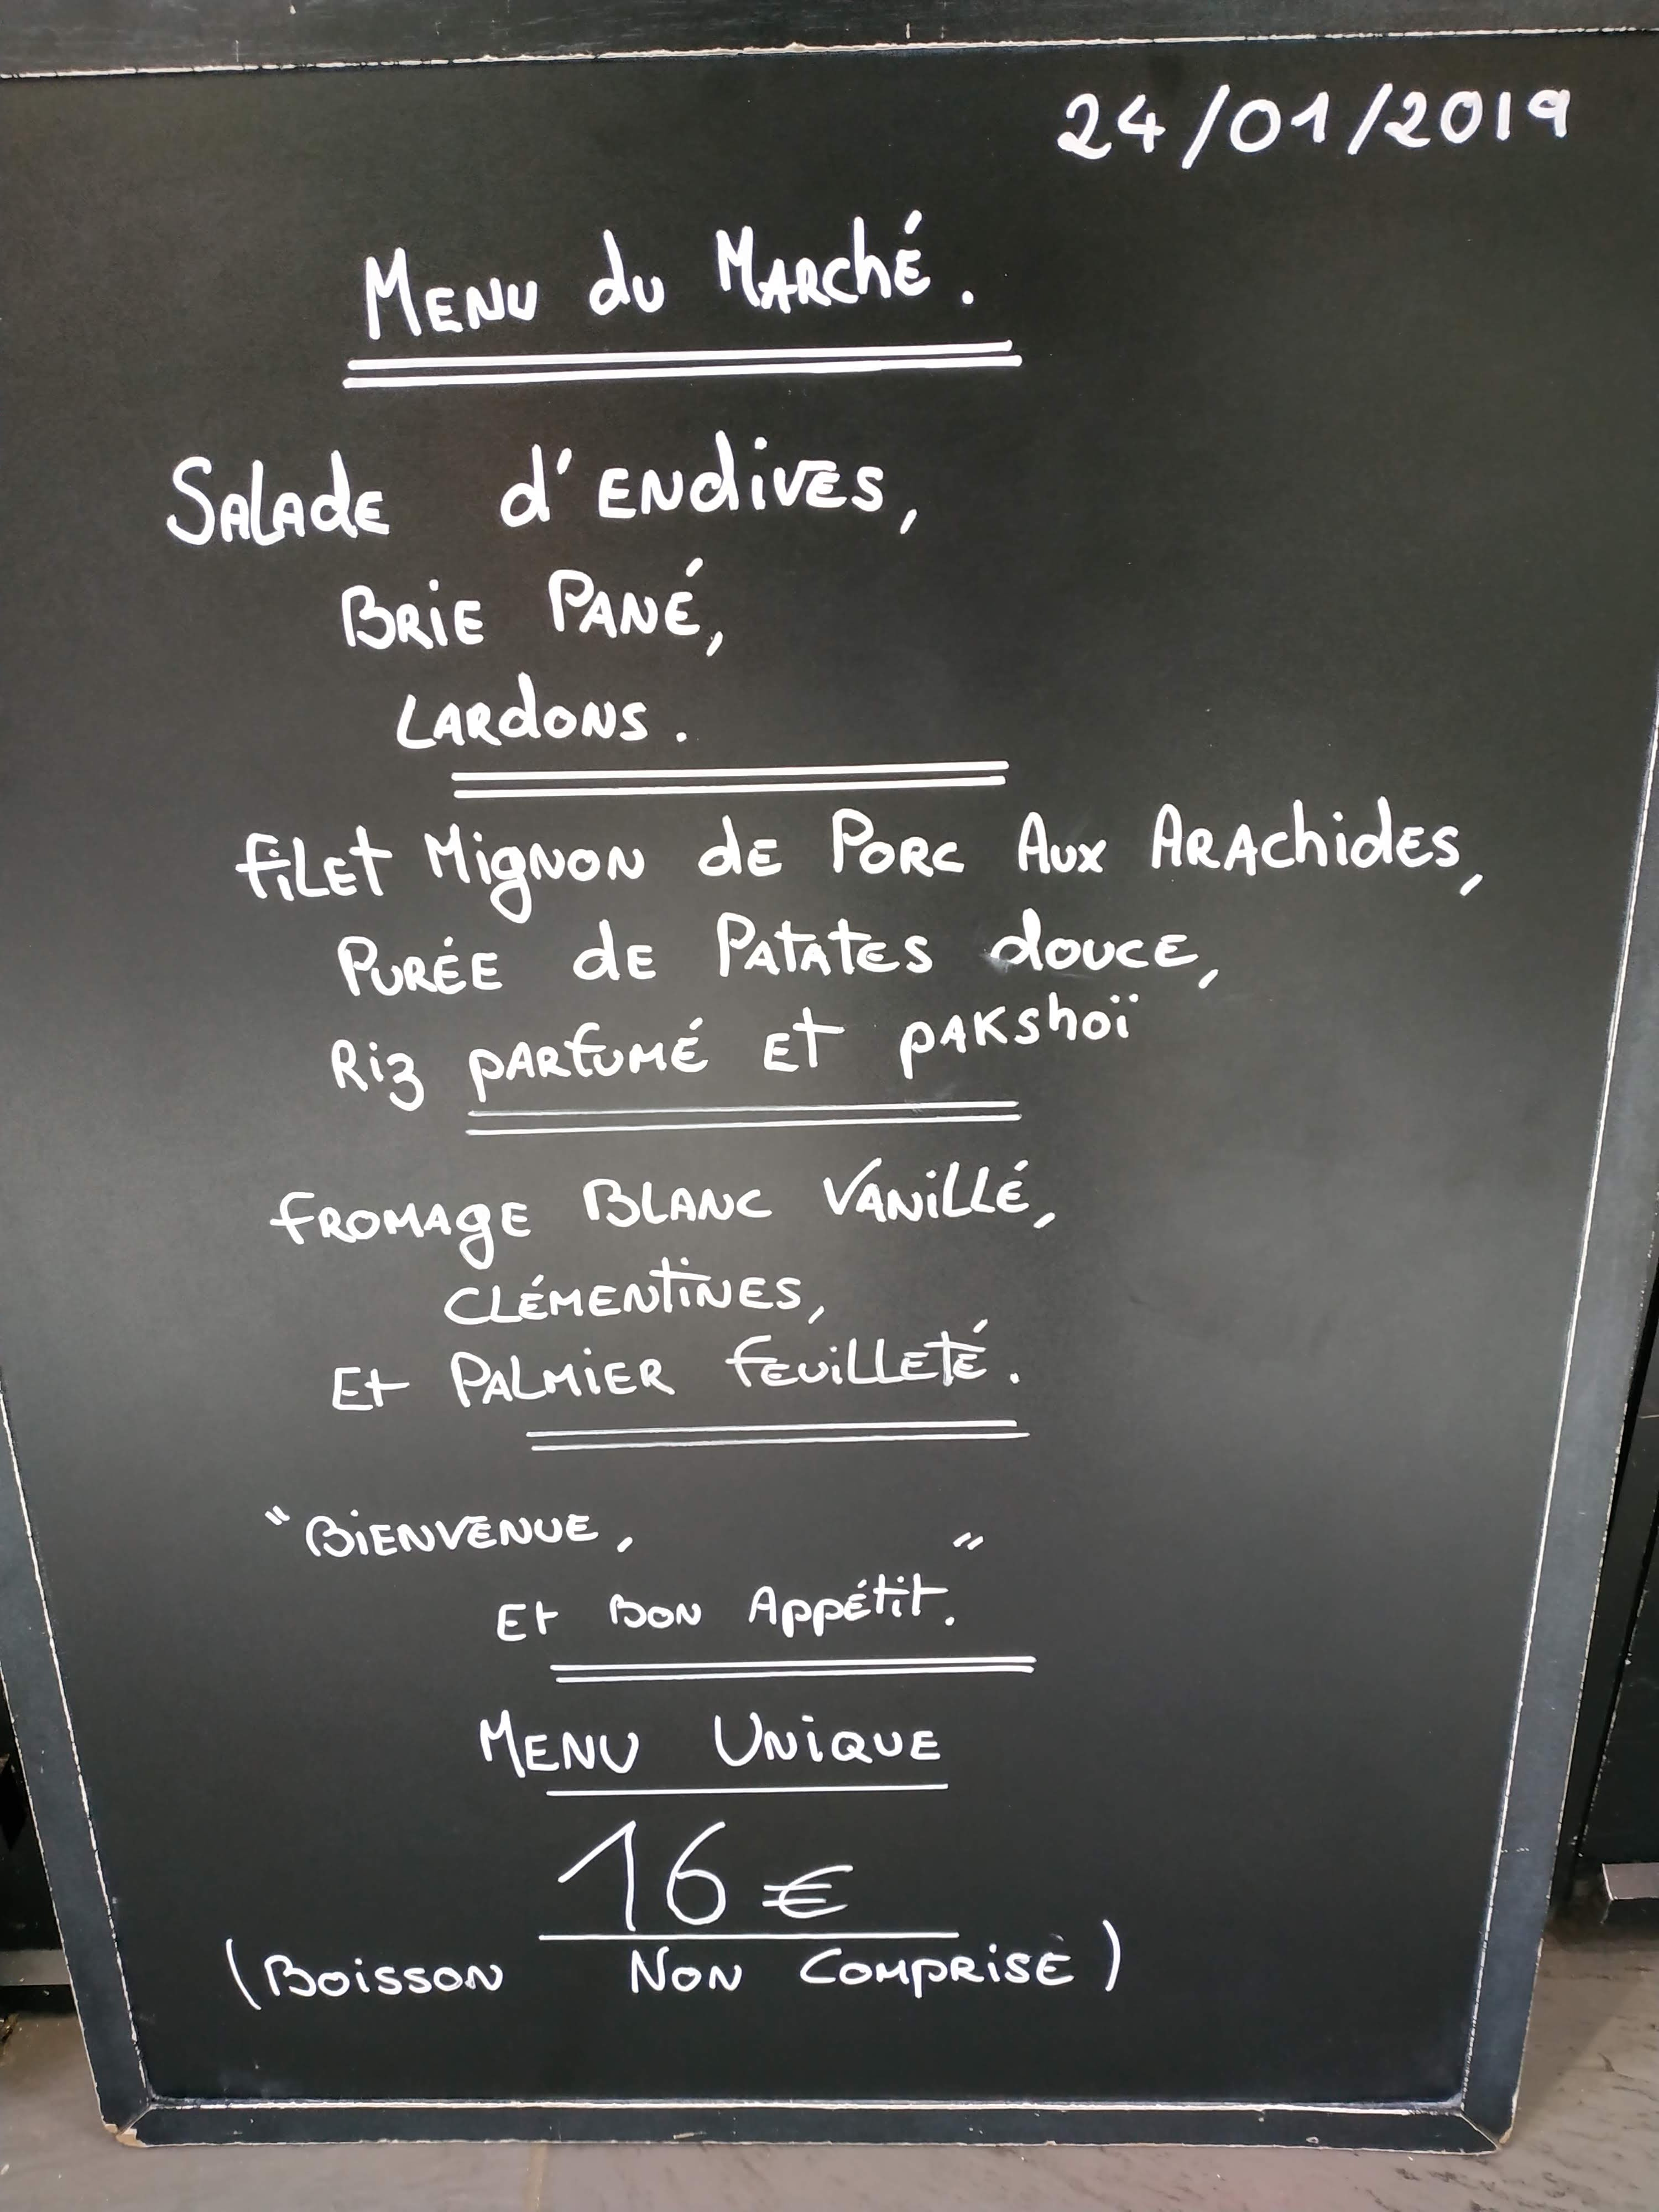 24/01/2019
Menu du Marché.
Salade d'Endives,
Brie Pané,
Lardons.
filet Mignon de Porc Aux Arachides,
Purée de Patates douce,
Riz parfumé et pakshoï
fromage Blanc Vanillé,
Clémentines,
Et Palmier feuilleté.
"Bienvenue, "
Et Bon Appétit.
Menu Unique
16 €
(Boisson Non Comprise)